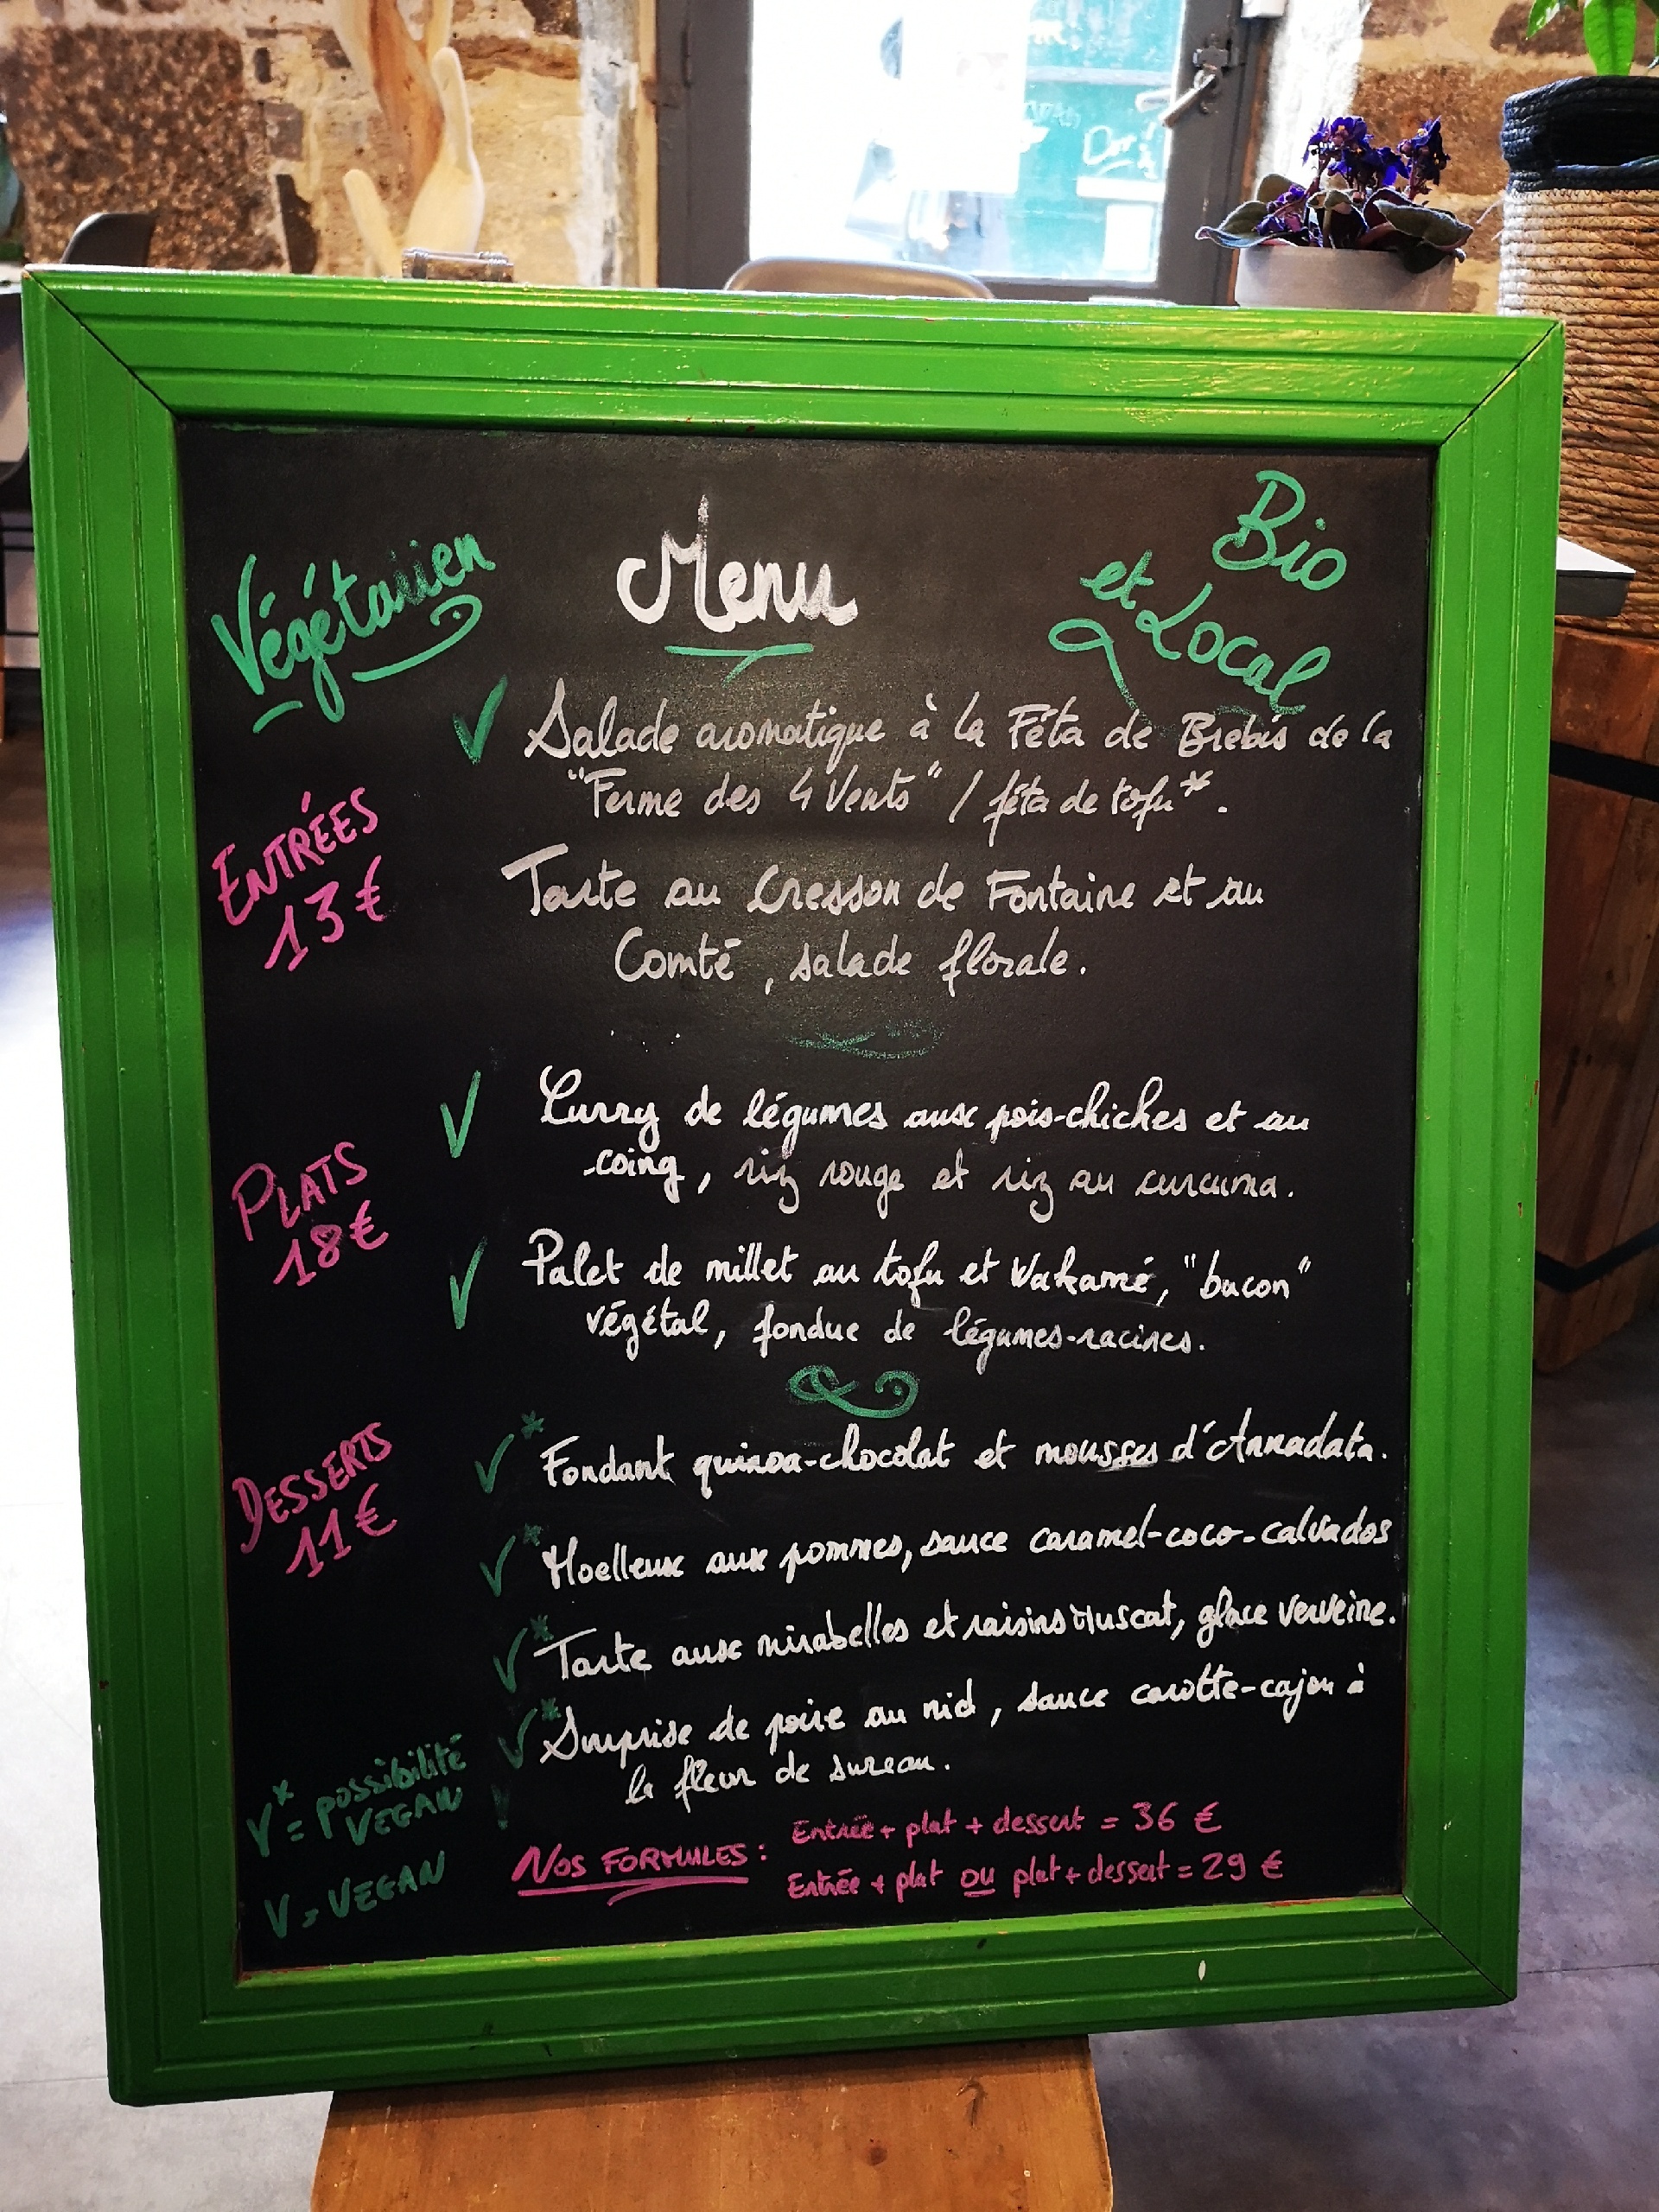 Végétarien
Menu
Bio
et Local
V Salade aromatique à la Féta de Brebis de la
"Ferme des 4 Vents" / féta de tofu*.
ENTRÉES
13€
Tarte au Cresson de Fontaine et au
Comté, salade florale.
V Curry de légumes aux pois-chiches et au
coing, riz rouge et riz au curcuma.
PLATS
18€
V Palet de millet au tofu et Wakamé, "bacon"
végétal, fondue de légumes-racines.
DESSERTS
11€
V* Fondant quinoa-chocolat et mousses d'Annadata.
V* Moelleux aux pommes, sauce caramel-coco-calvados
V* Tarte aux mirabelles et raisins Muscat, glace verveine.
V* Surprise de poire au nid, sauce carotte-cajou à
la fleur de sureau.
V* = possibilité
VEGAN
V = VEGAN
NOS FORMULES :
Entrée + plat + dessert = 36 €
Entrée + plat ou plat + dessert = 29 €